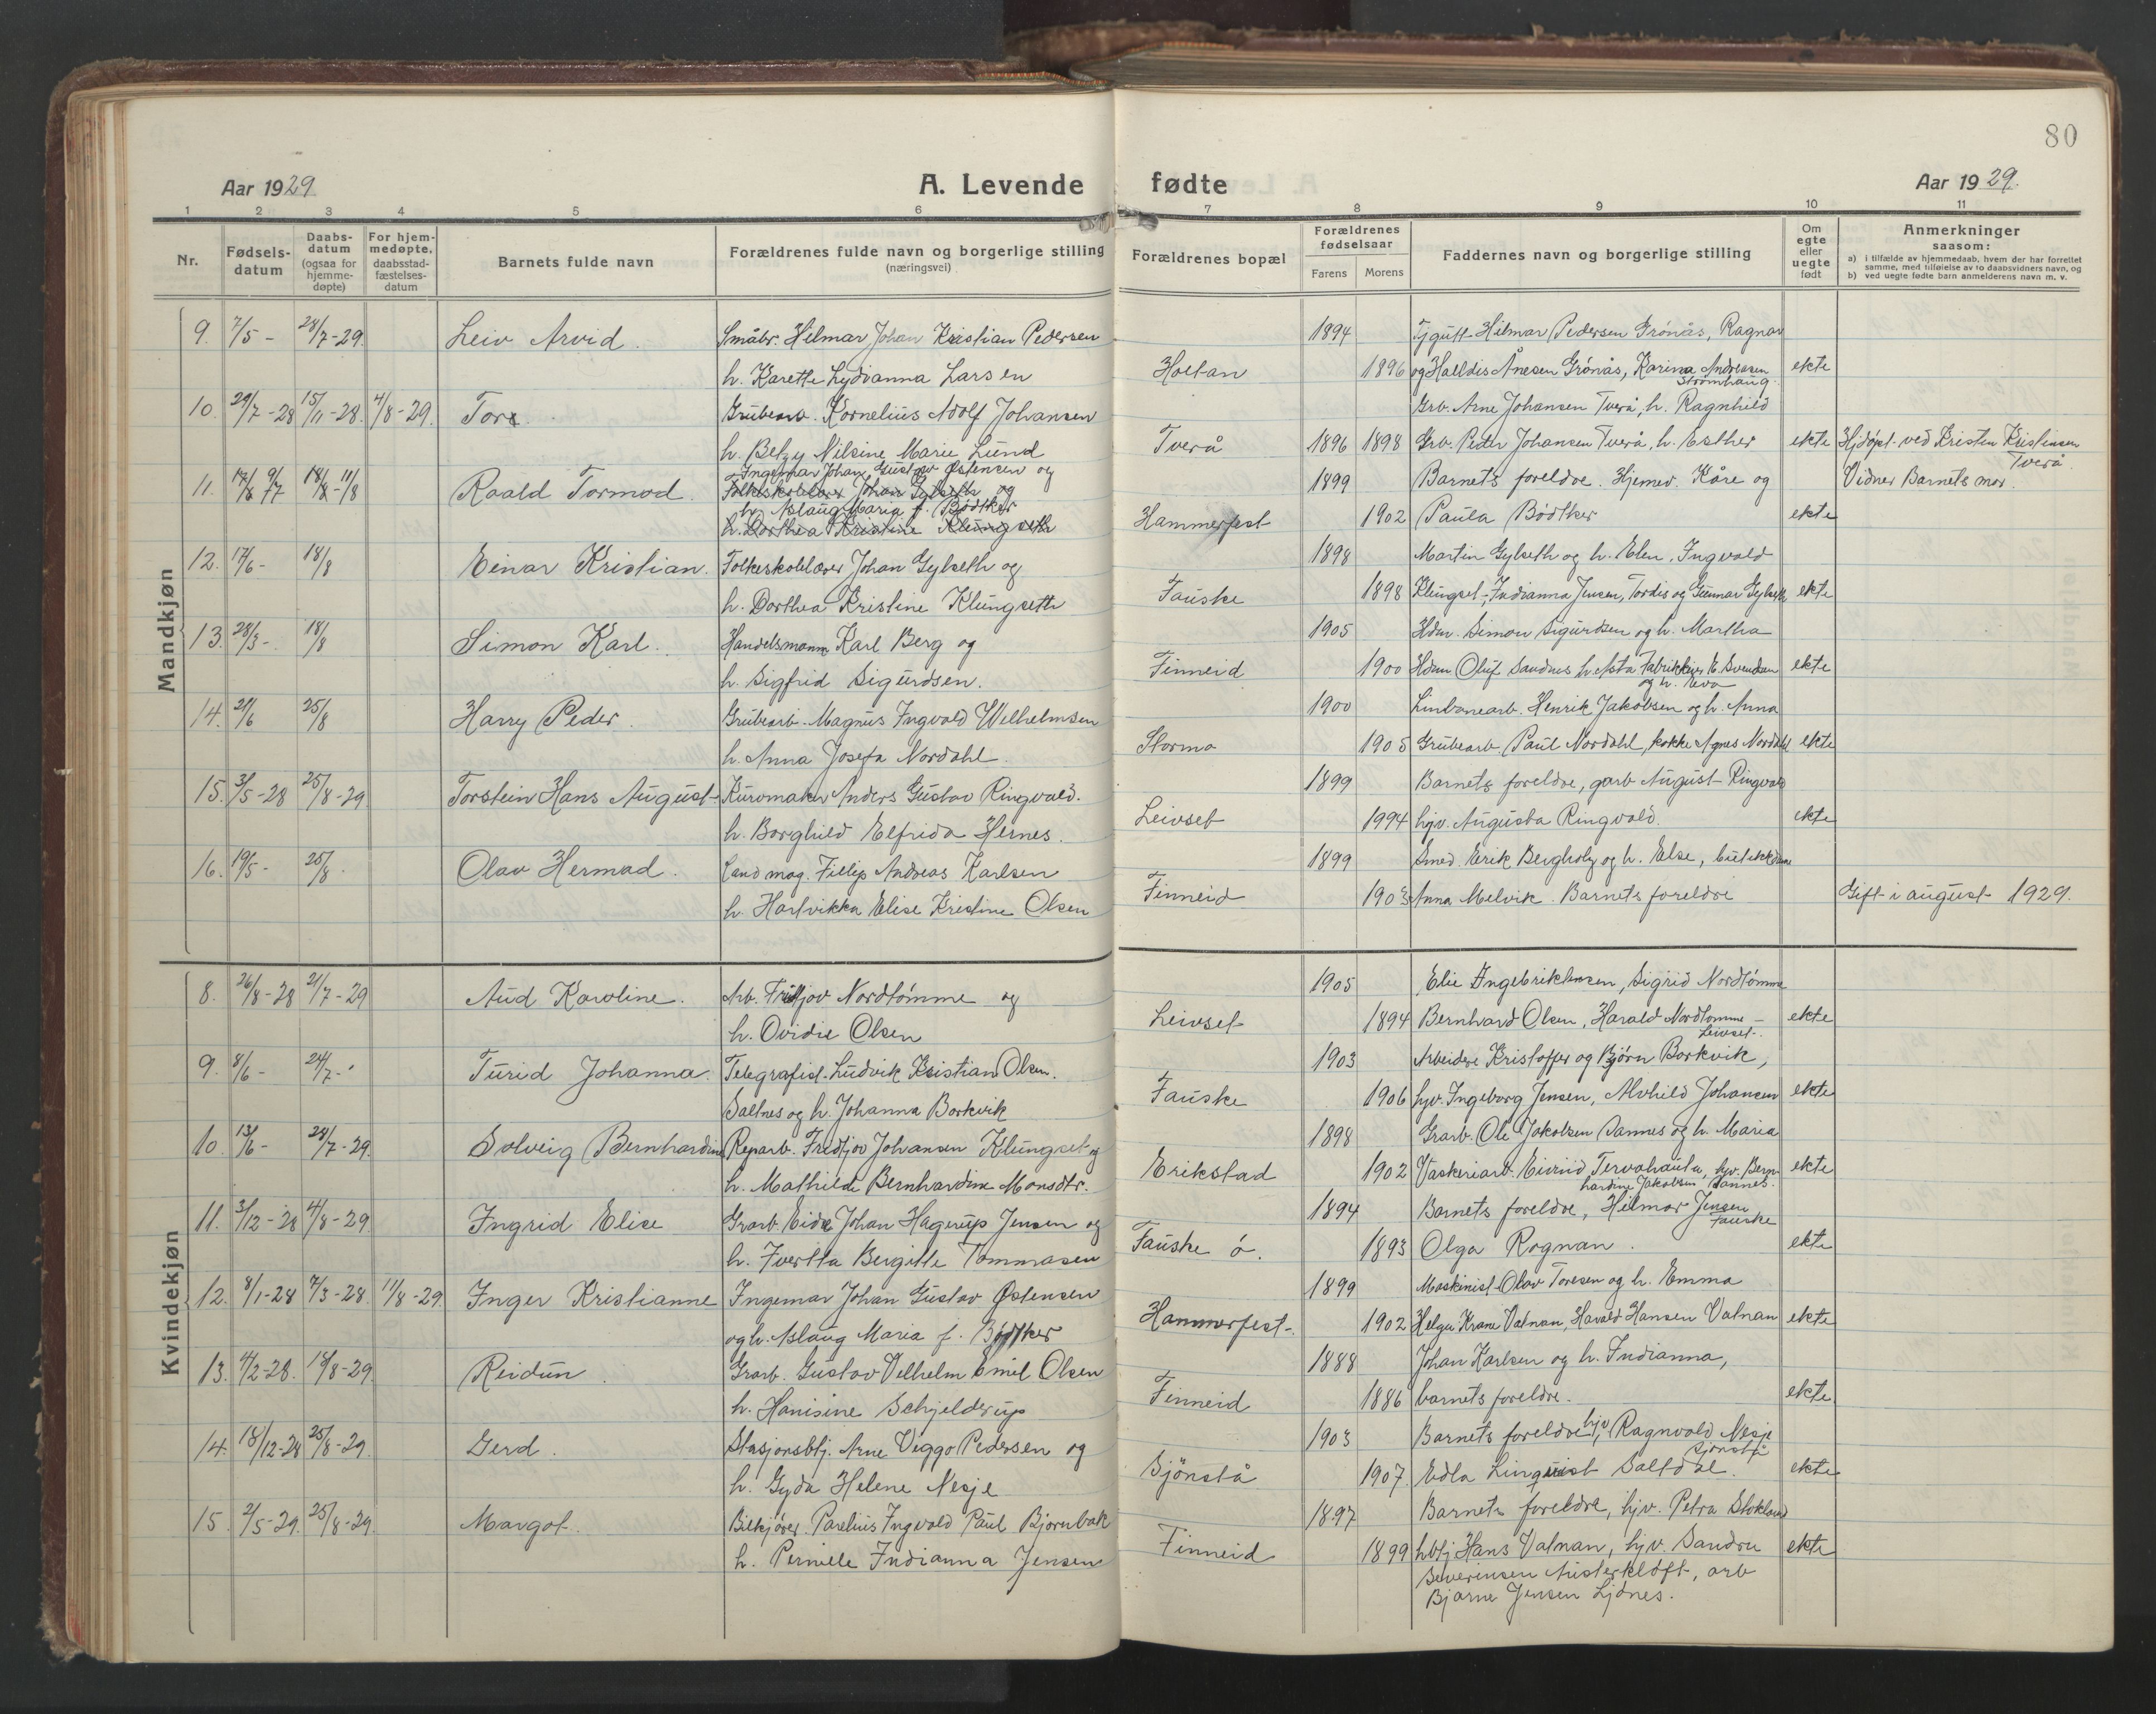 80
Aar 1929
A. Levende fødte
Aar 1929.
1 2 3 4 5 6 7 8 9 10 11
Nr.
Fødsels-
datum
Daabs-
datum
(ogsaa for
hjemme-
døpte)
For hjem-
medøpte,
daabsstad-
fæstelses-
datum
Barnets fulde navn
Forældrenes fulde navn og borgerlige stilling
(næringsvei)
Forældrenes bopæl
Forældrenes
fødselsaar
Farens Morens
Faddernes navn og borgerlige stilling
Om
egte
eller
uegte
født
Anmerkninger
saasom:
a) i tilfælde av hjemmedaab, hvem der har forrettet
samme, med tilføielse av to daabsvidners navn, og
b) ved uegte fødte barn anmelderens navn m. v.
Mandkjøn
9. 7/5 - 28/7-29. Leiv Arvid. Småbr. Hilmar Johan Kristian Pedersen 1894 Tjgutt Hilmar Pedersen Grönås, Ragnar
h. Karette Lydianna Larsen Holtan 1896 og Halldis Ånesen Grönås, Karina Andreasen ekte
Strömhaug.
10. 29/7-28 15/11-28. 4/8-29. Tore. Grubearb. Kornelius Adolf Johansen Grb. Arne Johansen Tverå, h. Ragnhild
h. Betzy Nilsine Marie Lund Tverå 1896 1898 Grb. Peder Johansen Tverå, h. Esther ekte Hjdöpt ved Kristen Kristensen
Tverå.
Ingemar Johan Gustav Østensen og
11. 17/6 9/7 18/8 - 11/8 Roald Tormod. Folkeskolelærer Johan Gylseth og 1899 Barnets foreldre. Hjemev. Kåre og Vidner Barnets mor.
h. Aslaug Maria f. Bödtker
h. Dorthea Kristine Klungseth Hammerfest 1902 Paula Bödtker ekte
12. 17/6- 18/8 Einar Kristian. Folkeskolelærer Johan Gylseth og 1898 Martin Gylseth og h. Elen, Ingvald
h. Dorthea Kristine Klungseth Fauske 1898 Klungset, Indianna Jensen, Tordis og Gunnar Gylseth ekte
13. 28/3- 18/8 Simon Karl. Handelsmann Karl Berg og 1905 Hdm. Simon Sigurdsen og h. Martha
h. Sigfrid Sigurdsen. Finneid 1900 Hdm Oluf Sandnes h. Asta Fabrikkeier E. Svendsen ekte
og h. Eva
14. 21/6 25/8 Harry Peder. Grubearb. Magnus Ingvald Wilhelmsen 1900 Linbanearb. Henrik Jakobsen og h. Anna
h. Anna Josefa Nordahl. Stormo 1905 Grubearb. Paul Nordahl, kokke Agnes Nordahl ekte
15. 3/5-28 25/8-29 Torstein Hans August Kurvmaker Anders Gustav Ringvold. 1899 Barnets foreldre, garb August Ringvold
h. Borghild Elfrida Hernes. Leivset 1994 hjv. Augusta Ringvold. ekte
16. 19/5- 25/8. Olav Hermod. Cand mag. Fillip Andreas Karlsen 1899 Smed. Erik Bergholy og h. Else,
h. Hartvikka Elise Kristine Olsen Finneid 1903 Anna Melvik. Barnets foreldre Gift i august 1929.
Kvindekjøn
8. 26/8-28 21/7-29 Aud Karoline. Arb. Fridtjov Nordtömme og 1905 Elie Ingebriktsen, Sigrid Nordtömme
h. Ovidie Olsen Leivset 1894 Bernhard Olsen, Harald Nordtömme - ekte
Leivset.
9. 8/6- 24/7-. Turid Johanna. Telegrafist Ludvik Kristian Olsen. 1903 Arbeidere Kristoffer og Björn Borkvik,
Saltnes og h. Johanna Borkvik Fauske 1906 hjv. Ingeborg Jensen, Alvhild Johansen ekte
10. 13/6- 24/7-29. Solveig Bernhardine Reparb. Fridtjov Johansen Klungset og 1898 Grarb. Ole Jakobsen Vannes og h. Maria
h. Mathilde Bernhardine Monsdtr. Erikstad 1902 Vaskeriarb. Eivind Tervahauta, hjv. Bern- ekte
hardine Jakobsen Vannes.
11. 3/12-28 4/8-29. Ingrid Elise Grarb. Eide Johan Hagerup Jensen og 1894 Barnets foreldre, Hilmar Jensen
Fauske
h. Ivertta Bergitte Tommasen Fauske ö. 1893 Olga Rognan. ekte
12. 8/1-28 7/3-28. 11/8-29. Inger Kristianne Ingemar Johan Gustav Østensen 1899 Maskinist Olav Toresen og h. Emma
og h. Aslaug Maria f. Bödtker Hammerfest. 1902 Helga Krane Valnan, Harald Hansen Valnan ekte
13. 4/2-28. 18/8-29. Reidun. Grarb. Gustav Velhelm Emil Olsen 1888 Johan Karlsen og h. Indianna,
h. Hanisine Schjelderup Finneid 1886 barnets foreldre. ekte
14. 18/12-28 25/8-29. Gerd. Stasjonsbtj. Arne Viggo Pedersen og 1903 Barnets foreldre, hjv Ragnvold Nesje
Sjönstå
h. Gyda Helene Nesje Sjönstå 1907. Edla Linqvist Saltdal. ekte
15. 2/5-29. 25/8-29. Margot. Bilkjörer. Parelius Ingvald Paul Bjornbak 1897 Barnets foreldre, hjv. Petra Stokland
h. Pernille Indianna Jensen Finneid 1899 hbtj Hans Valnan, hjv. Sandra ekte
Severinsen Austerklöft, arb
Bjarne Jensen Ljönes.